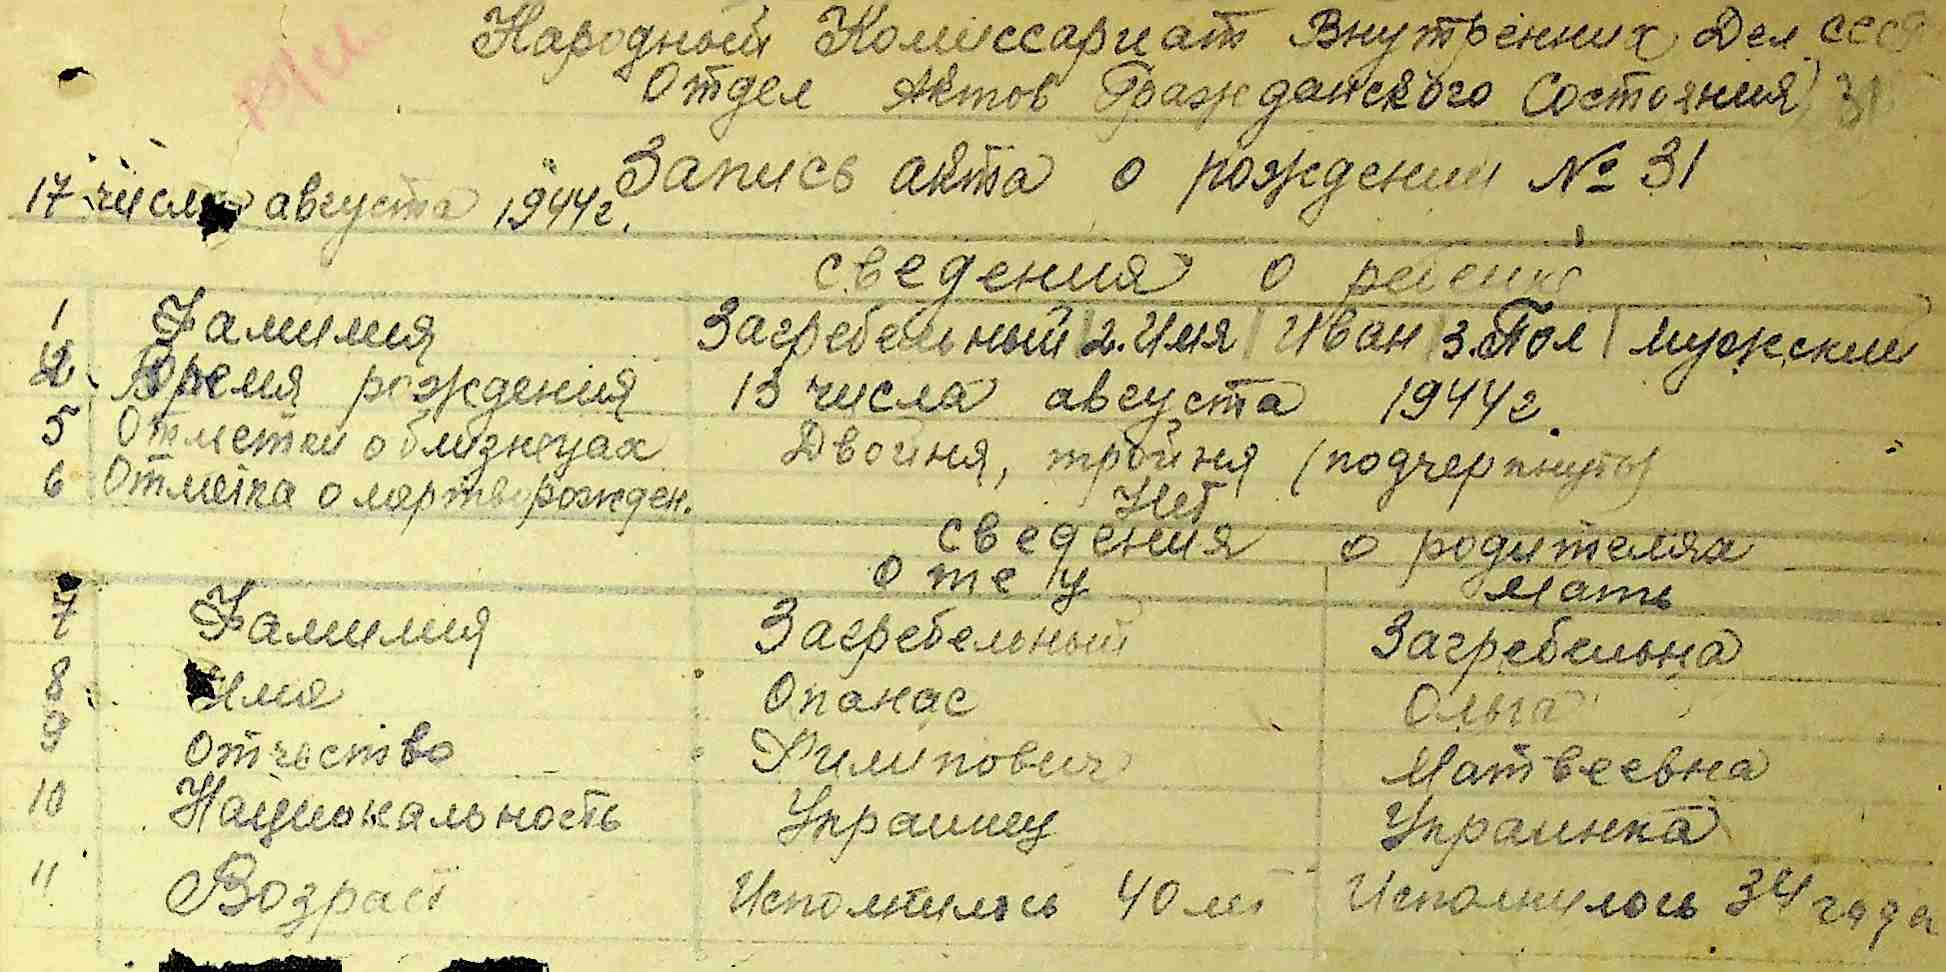 Народный Комиссариат Внутренних Дел СССР
Отдел Актов Гражданского Состояния
Запись акта о рождении № 31
17 числа августа 1944 г.
сведения о ребенке
1 Фамилия Загребельный 2. Имя Иван 3. Пол мужский
4 Время рождения 13 числа августа 1944 г.
5 Отметки о близнецах Двойня, тройня (подчеркнуть)
6 Отметка о мертворожден. Нет
сведения о родителях
отец Мать
7 Фамилия Загребельный Загребельна
8 Имя Опанас Ольга
9 Отчество Филипович Матвеевна
10 Национальность Украинец Украинка
11 Возраст Исполнилось 40 лет Исполнилось 34 года